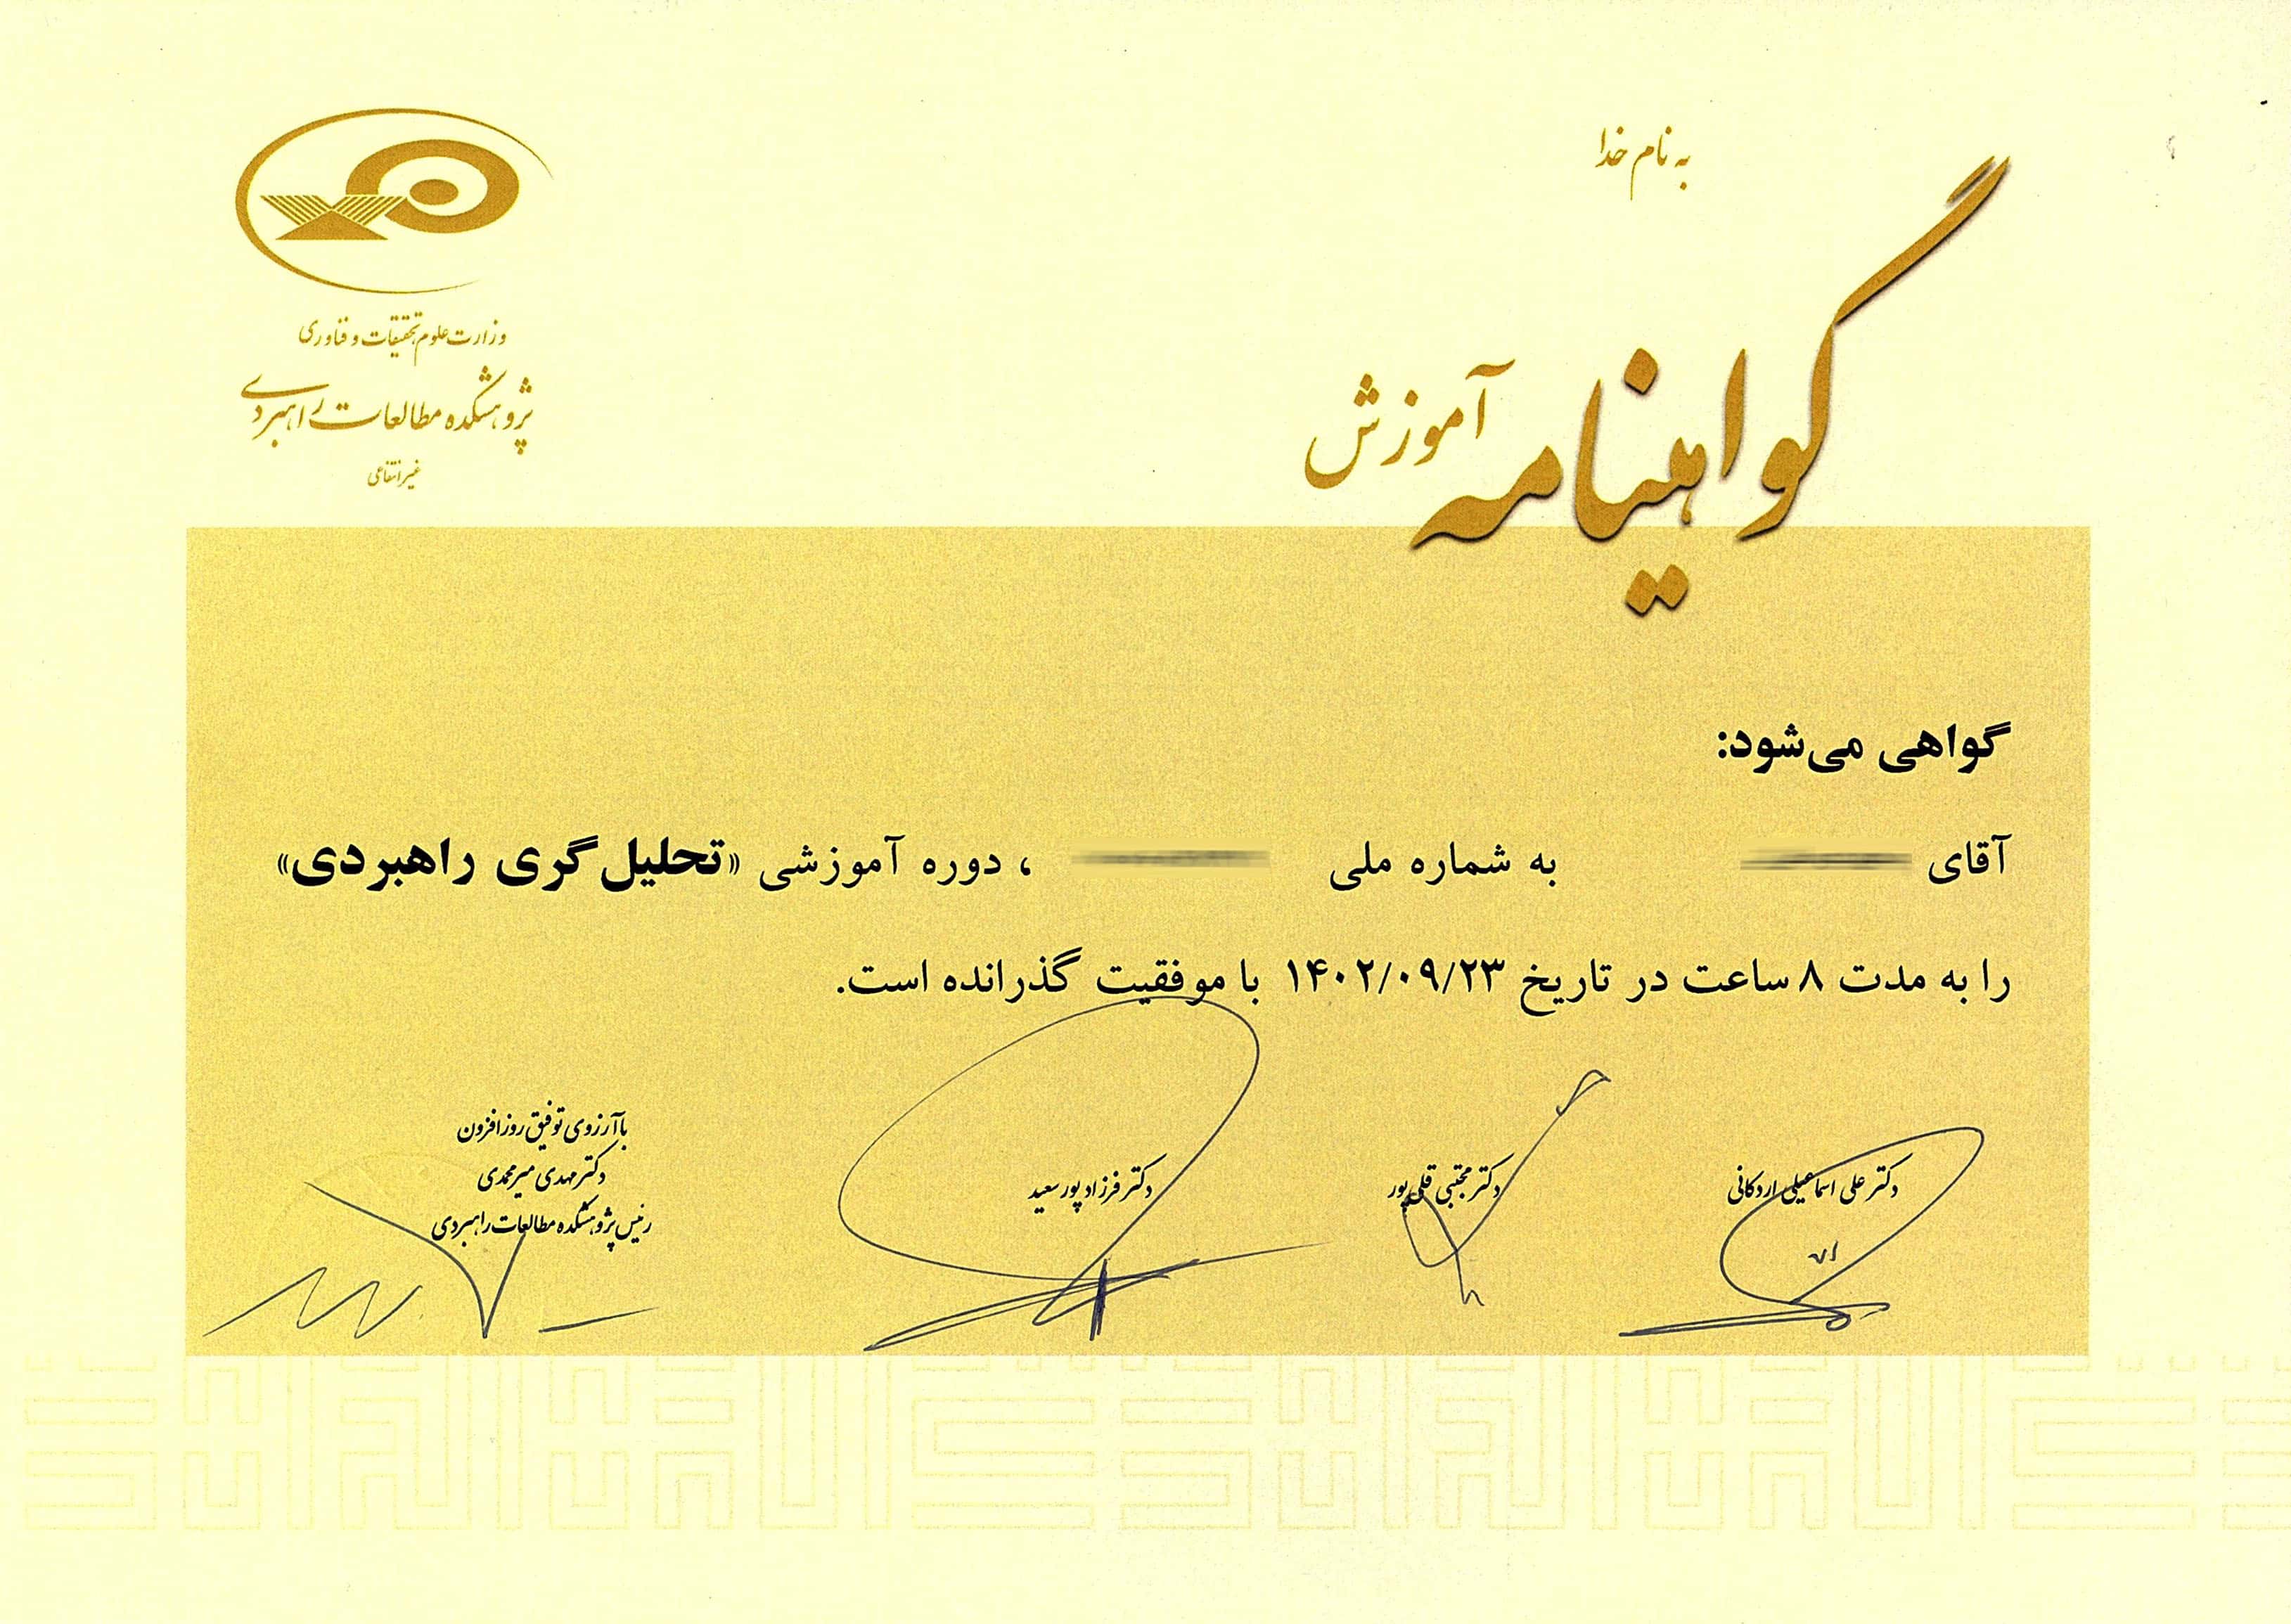 به نام خدا
گواهینامه آموزش
وزارت علوم تحقیقات و فناوری
پژوهشکده مطالعات راهبردی
غیرانتفاعی
گواهی می‌شود:
آقای به شماره ملی ، دوره آموزشی «تحلیل‌گری راهبردی»
را به مدت ۸ ساعت در تاریخ ۱۴۰۲/۰۹/۲۳ با موفقیت گذرانده است.
دکتر علی اسماعیلی اردکانی
دکتر مجتبی قلی‌پور
دکتر فرزاد پورسعید
با آرزوی توفیق روزافزون
دکتر مهدی میرمحمدی
رئیس پژوهشکده مطالعات راهبردی